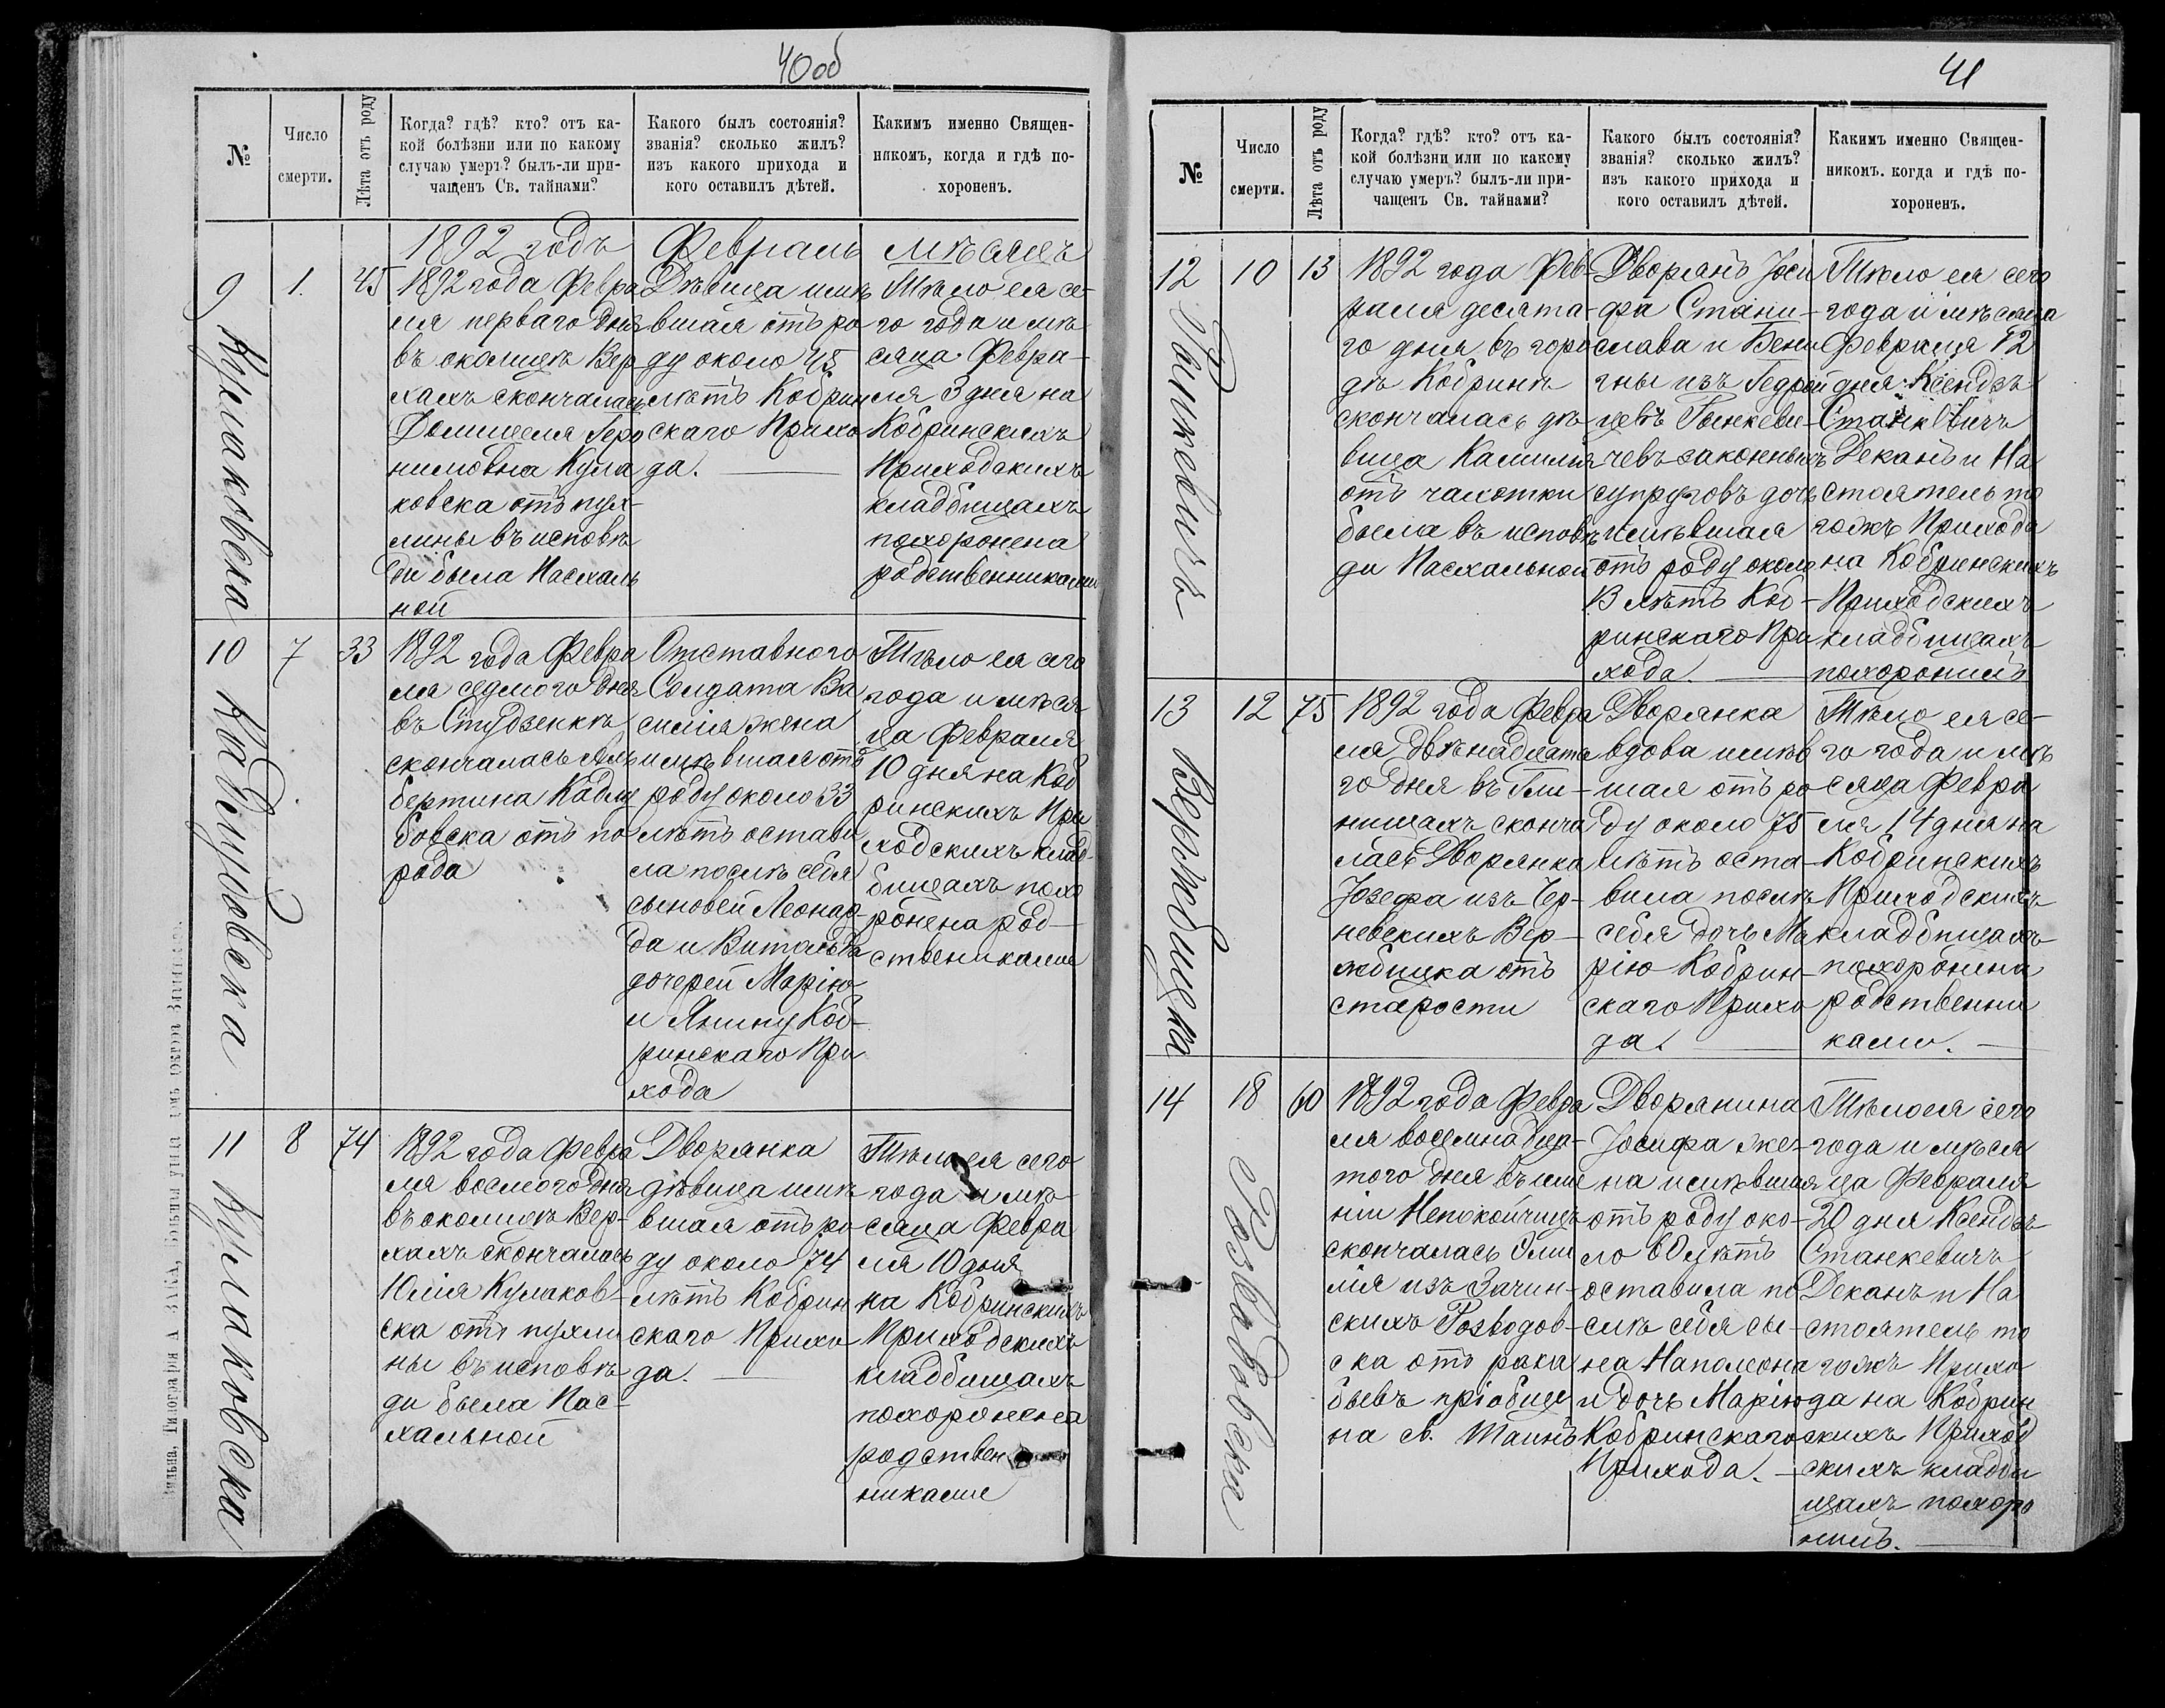 40 об
№
Число
смерти.
Лѣта отъ роду
Когда? гдѣ? кто? отъ ка-
кой болѣзни или по какому
случаю умеръ? былъ-ли при-
чащенъ Св. тайнами?
Какого былъ состоянія?
званія? сколько жилъ?
изъ какого прихода и
кого оставилъ дѣтей.
Какимъ именно Священ-
никомъ, когда и гдѣ по-
хороненъ.
1892 годъ Февраль мѣсяцъ
9
Кулаковска
1.
45
1892 года Февра
ля перваго дня
въ околицѣ Вер-
хахъ скончалась
Домицеля Геро
нимовна Кула
ковска отъ пух-
лины въ исповѣ
ди была Пасхаль
ной
Дѣвица имѣ
вшая отъ ро
ду около 45
лѣтъ Кобрин
скаго Прихо
да.
Тѣло ея се-
го года и мѣ
сяца Февра-
ля 3 дня на
Кобринскихъ
Приходскихъ
кладбищахъ
похоронена
родственниками
10
Кадлубовска
7
33
1892 года Февра
ля седмого дня
въ Студзенкѣ
скончалась Аль
бертина Кадлу
бовска отъ по
рода
Отставного
Солдата Ва
силія жена
имѣвшая отъ
роду около 33
лѣтъ остави
ла послѣ себя
сыновей Леонар-
да и Витольда
дочерей Марію
и Янину Коб-
ринскаго При
хода
Тѣло ея сего
года и мѣся
ца Февраля
10 дня на Коб
ринскихъ При
ходскихъ клад-
бищахъ похо
ронена род-
ствениками
11
Кулаковска
8
74
1892 года Февра
ля восмого дня
въ околицѣ Вер-
хахъ скончалась
Юлія Кулаков-
ска отъ пухли
ны въ исповѣ
ди была Пас-
хальной
Дворянка
дѣвица имѣ
вшая отъ ро
ду около 74
лѣтъ Кобрин
скаго Прихо
да.
Тѣло ея сего
года и мѣ-
сяца Февра
ля 10 дня
на Кобринскихъ
Приходскихъ
кладбищахъ
похоронена
родствен
никами
41
№
Число
смерти.
Лѣта отъ роду
Когда? гдѣ? кто? отъ ка-
кой болѣзни или по какому
случаю умеръ? былъ-ли при-
чащенъ Св. тайнами?
Какого былъ состоянія?
званія? сколько жилъ?
изъ какого прихода и
кого оставилъ дѣтей.
Какимъ именно Священ-
никомъ. когда и гдѣ по-
хороненъ.
12
10
13
1892 года Фев-
раля десята-
го дня въ горо
дѣ Кобринѣ
скончалась дѣ
вица Камилия
отъ чахотки
была въ исповѣ
ди Пасхальной
Дворянъ Іоси
фа Стани-
слава и Бени
гны изъ Гедрой
цевъ Рынкеви-
чевъ законныхъ
супруговъ дочь
имѣвшая
отъ роду около
13 лѣтъ Коб-
ринскаго При
хода.
Тѣло ея сего
года и мѣсяца
Февраля 12
дня Ксендзъ
Станкевичъ
Деканъ и На
стоятель то
гожъ Прихода
на Кобринскихъ
Приходскихъ
кладбищахъ
похоронилъ
13
12
75
1892 года Февра
ля двѣнадцата
го дня въ Гли-
нищахъ сконча
лась Дворянка
Іозефа изъ Чер-
невскихъ Вер-
жбицка отъ
старости
Дворянка
вдова имѣв
шая отъ ро
ду около 75
лѣтъ оста-
вила послѣ
себя дочь Ма
рію Кобрин-
скаго Прихо
да.
Тѣло ея се-
го года и мѣ
сяца Февра
ля 14 дня на
Кобринскихъ
Приходскихъ
кладбищахъ
похоронена
родственни
ками.
14
18
60
1892 года Февра
ля восемнадца-
того дня въ име
ніи Непокойчицѣ
скончалась Эми
лія изъ Зачин-
скихъ Розводов-
ска отъ рака
бывъ пріобще
на св. Таинъ
Дворянина
Іосифа же-
на имѣвшая
отъ роду око-
ло 60 лѣтъ
оставила по
слѣ себя сы-
на Наполеона
и дочь Марію
Кобринскаго
Прихода.
Тѣло ея сего
года и мѣся
ца Февраля
20 дня Ксендзъ
Станкевичъ
Деканъ и На
стоятель то
гожъ Прихо
да на Кобрин
скихъ Приход
скихъ кладби
щахъ похоро
нилъ.